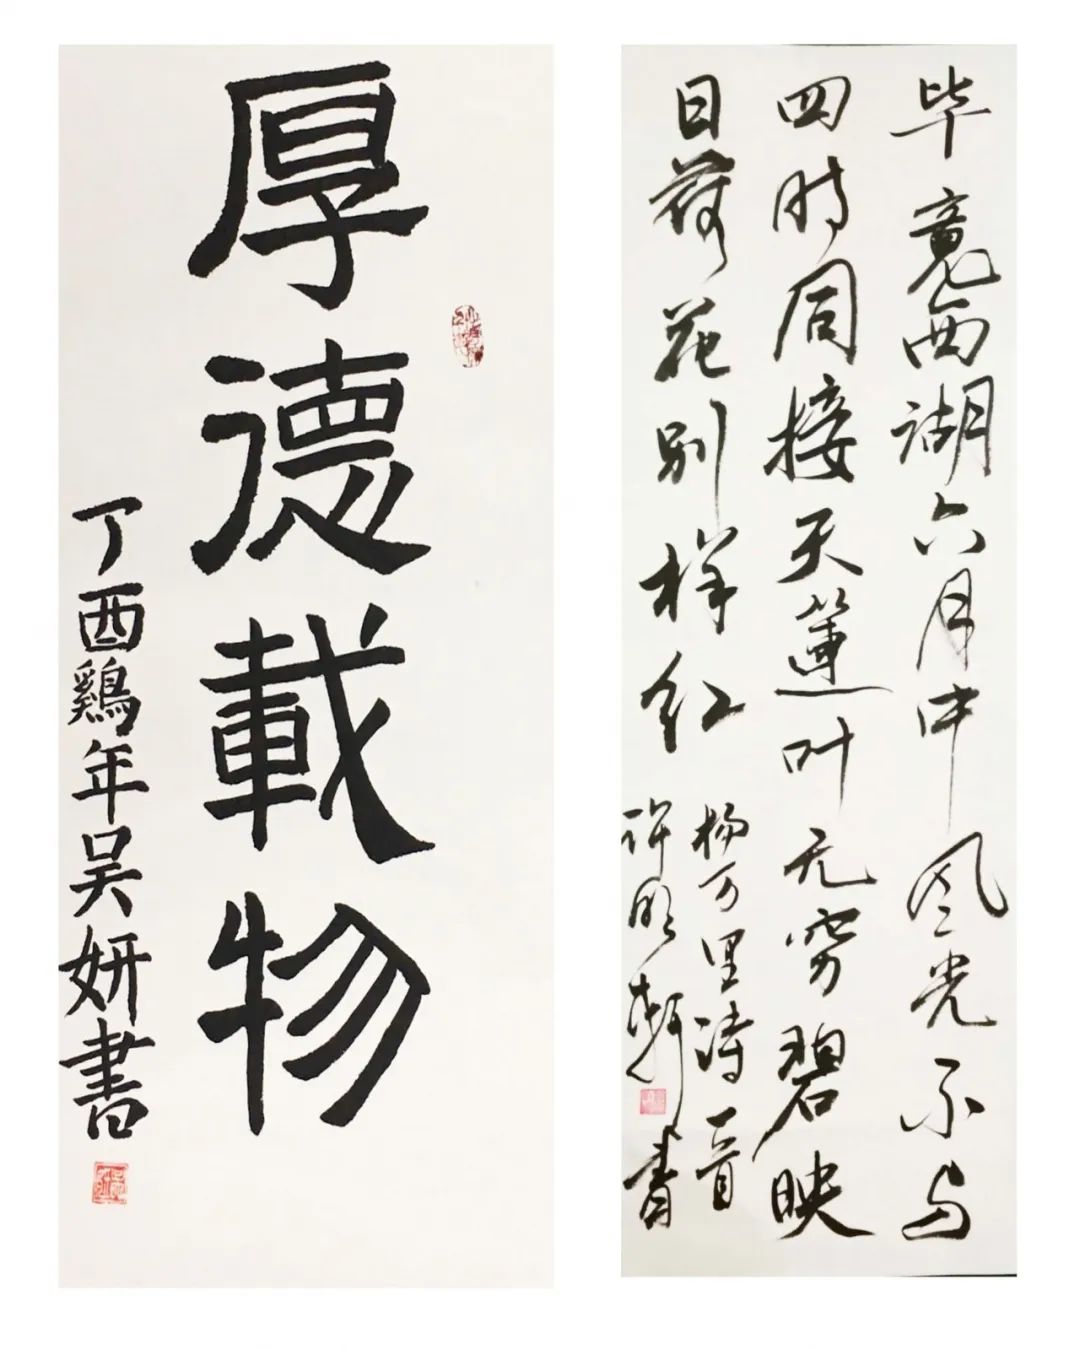 厚德載物
丁酉鷄年吴妍書
毕竟西湖六月中风光不与
四时同接天蓮叶无穷碧映
日荷花别样红
杨万里诗一首
许明轩书